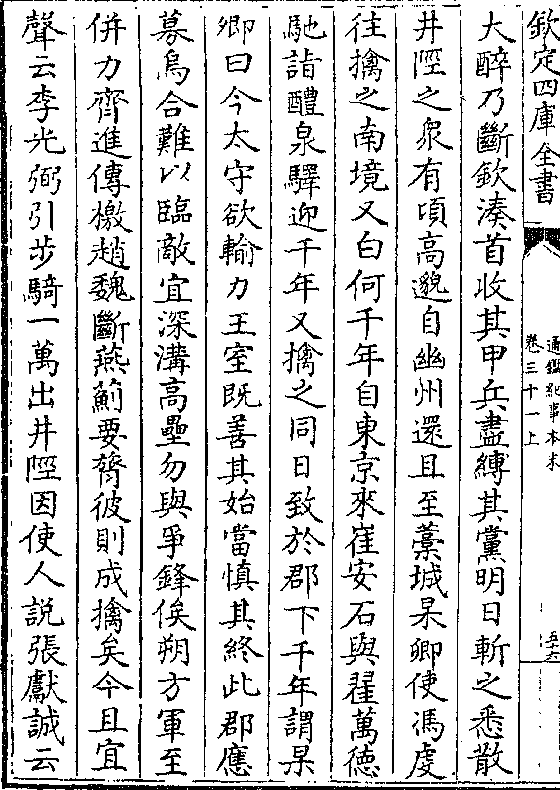 欽定四庫全書
通鑑紀事本末
卷三十一上
五十六
大醉乃斷欽湊首收其甲兵盡縛其黨明日斬之悉散
井陘之衆有頃高邈自幽州還且至藁城杲卿使馮虔
往擒之南境又白何千年自東京來崔安石與翟萬德
馳詣醴泉驛迎千年又擒之同日致於郡下千年謂杲
卿曰今太守欲輸力王室既善其始當慎其終此郡應
募烏合難以臨敵宜深溝高壘勿與爭鋒俟朔方軍至
併力齊進傳檄趙魏斷燕薊要膂彼則成擒矣今且宜
聲云李光弼引步騎一萬出井陘因使人説張獻誠云